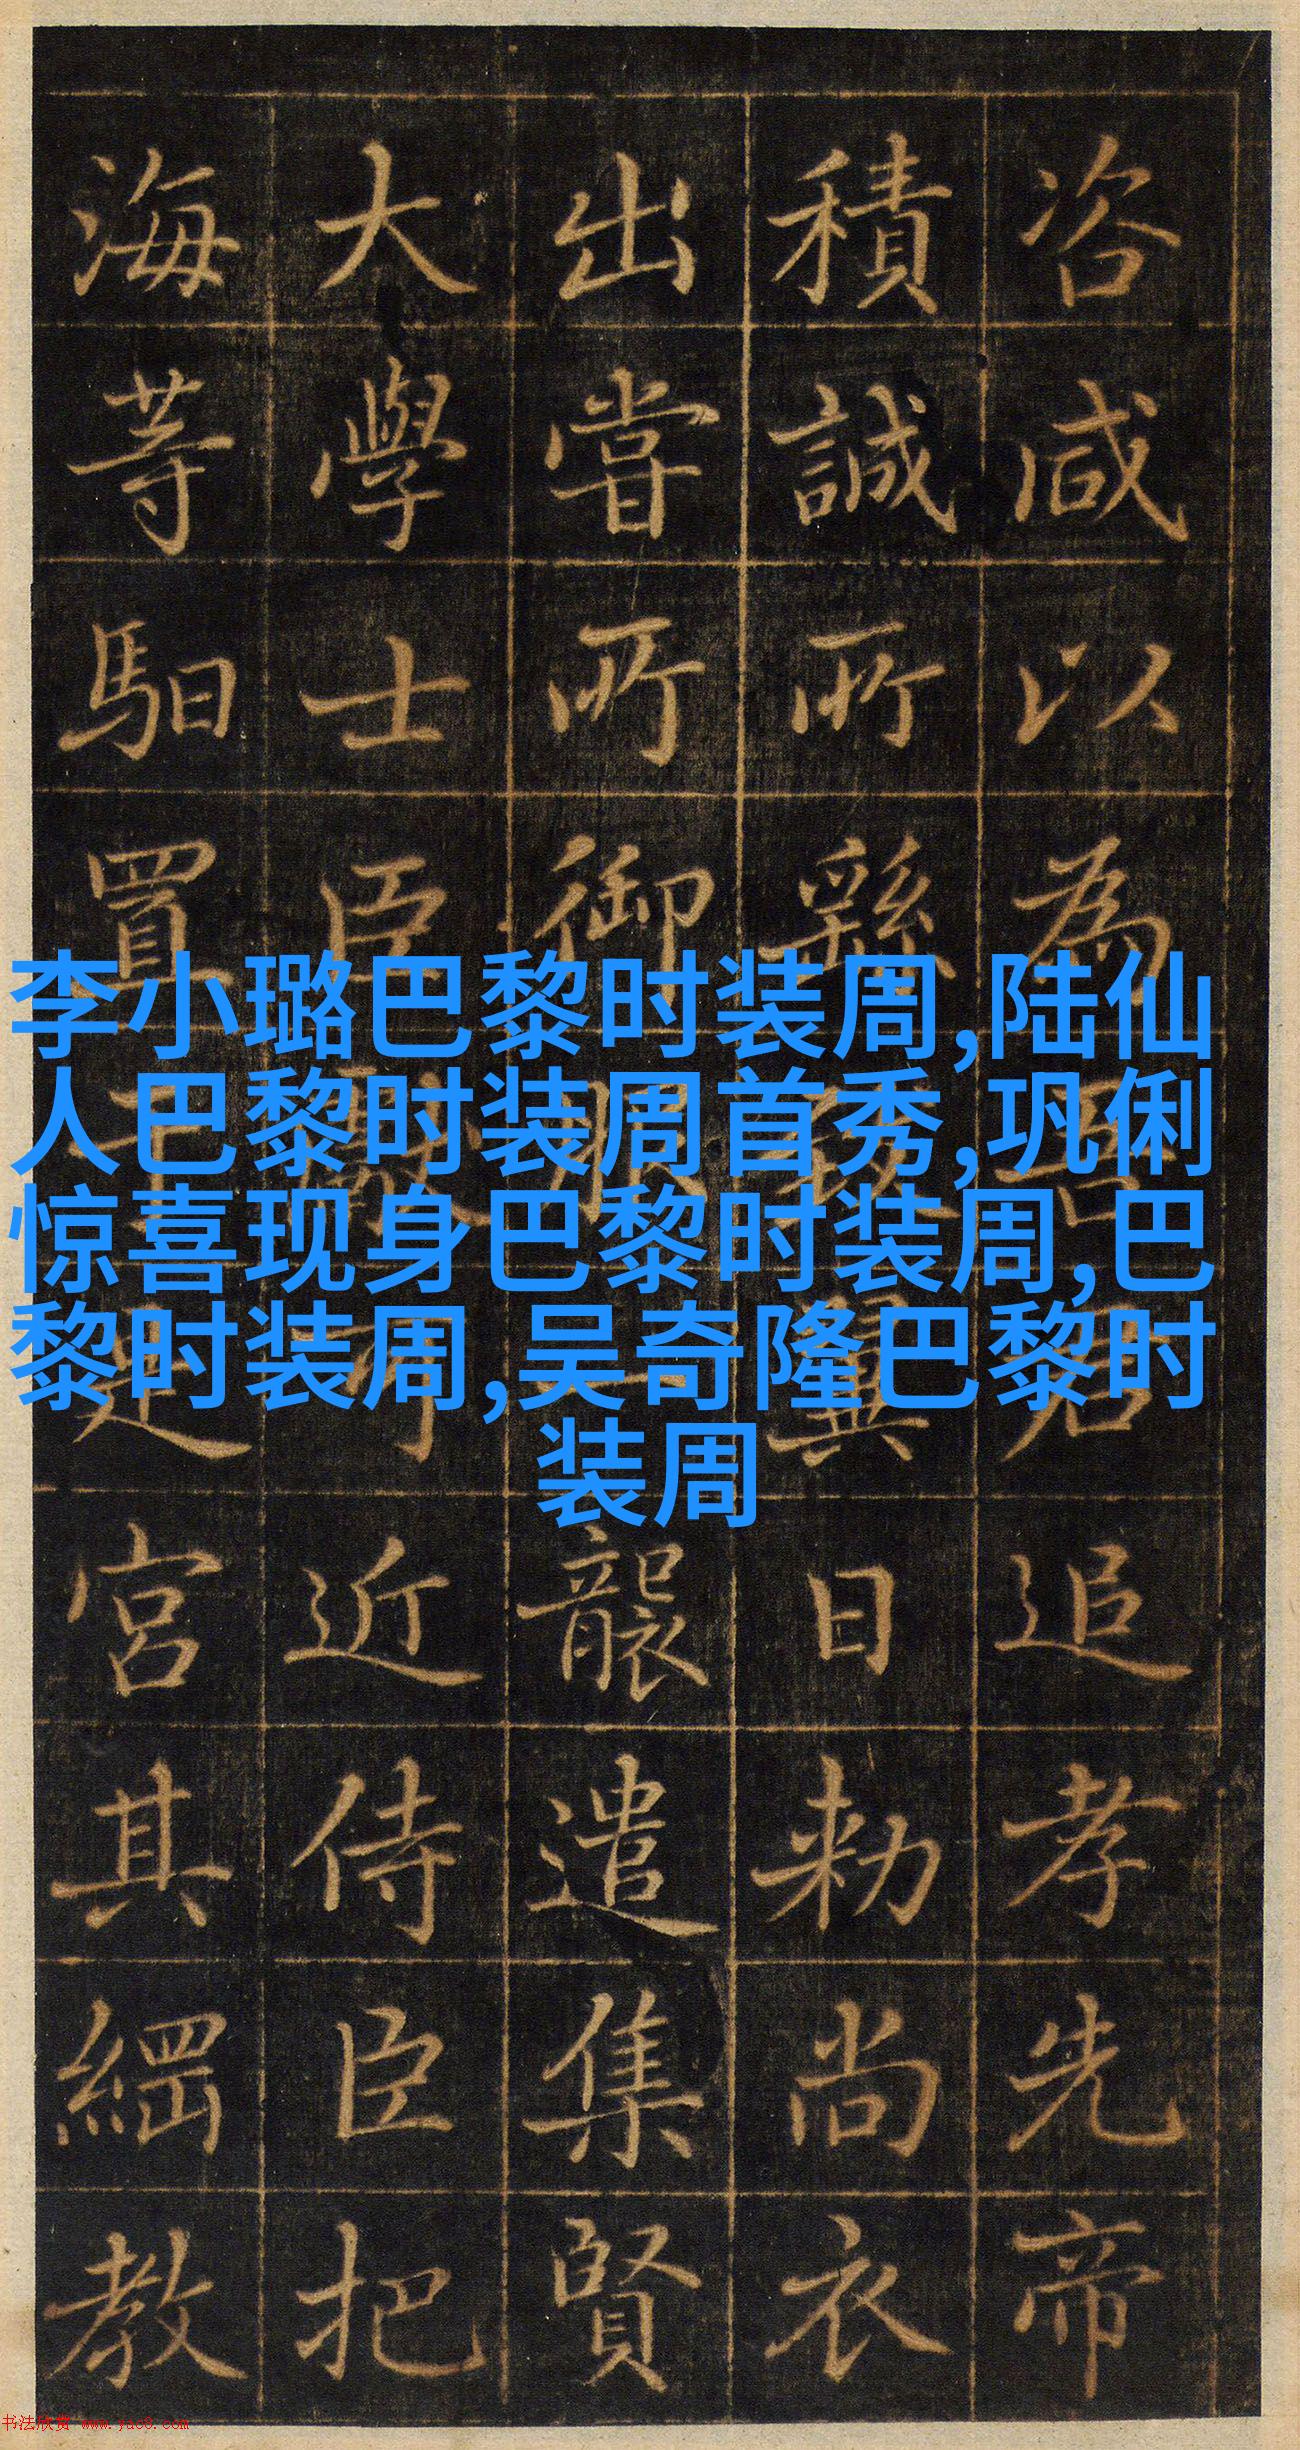 咨咸以為君追孝先帝
積誠所繇翼日勑尚衣
出嘗所御服襲遣集賢
大學士臣近侍臣把
海等馹置宮其綱教
李小璐巴黎时装周,陆仙
人巴黎时装周首秀,巩俐
惊喜现身巴黎时装周,巴
黎时装周,吴奇隆巴黎时
装周
书法欣赏 www.yac8.com